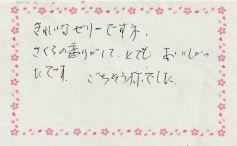 きれいなゼリーですネ。
さくらの香りがして、とても おいしかっ
たです。 ごちそう様でした。